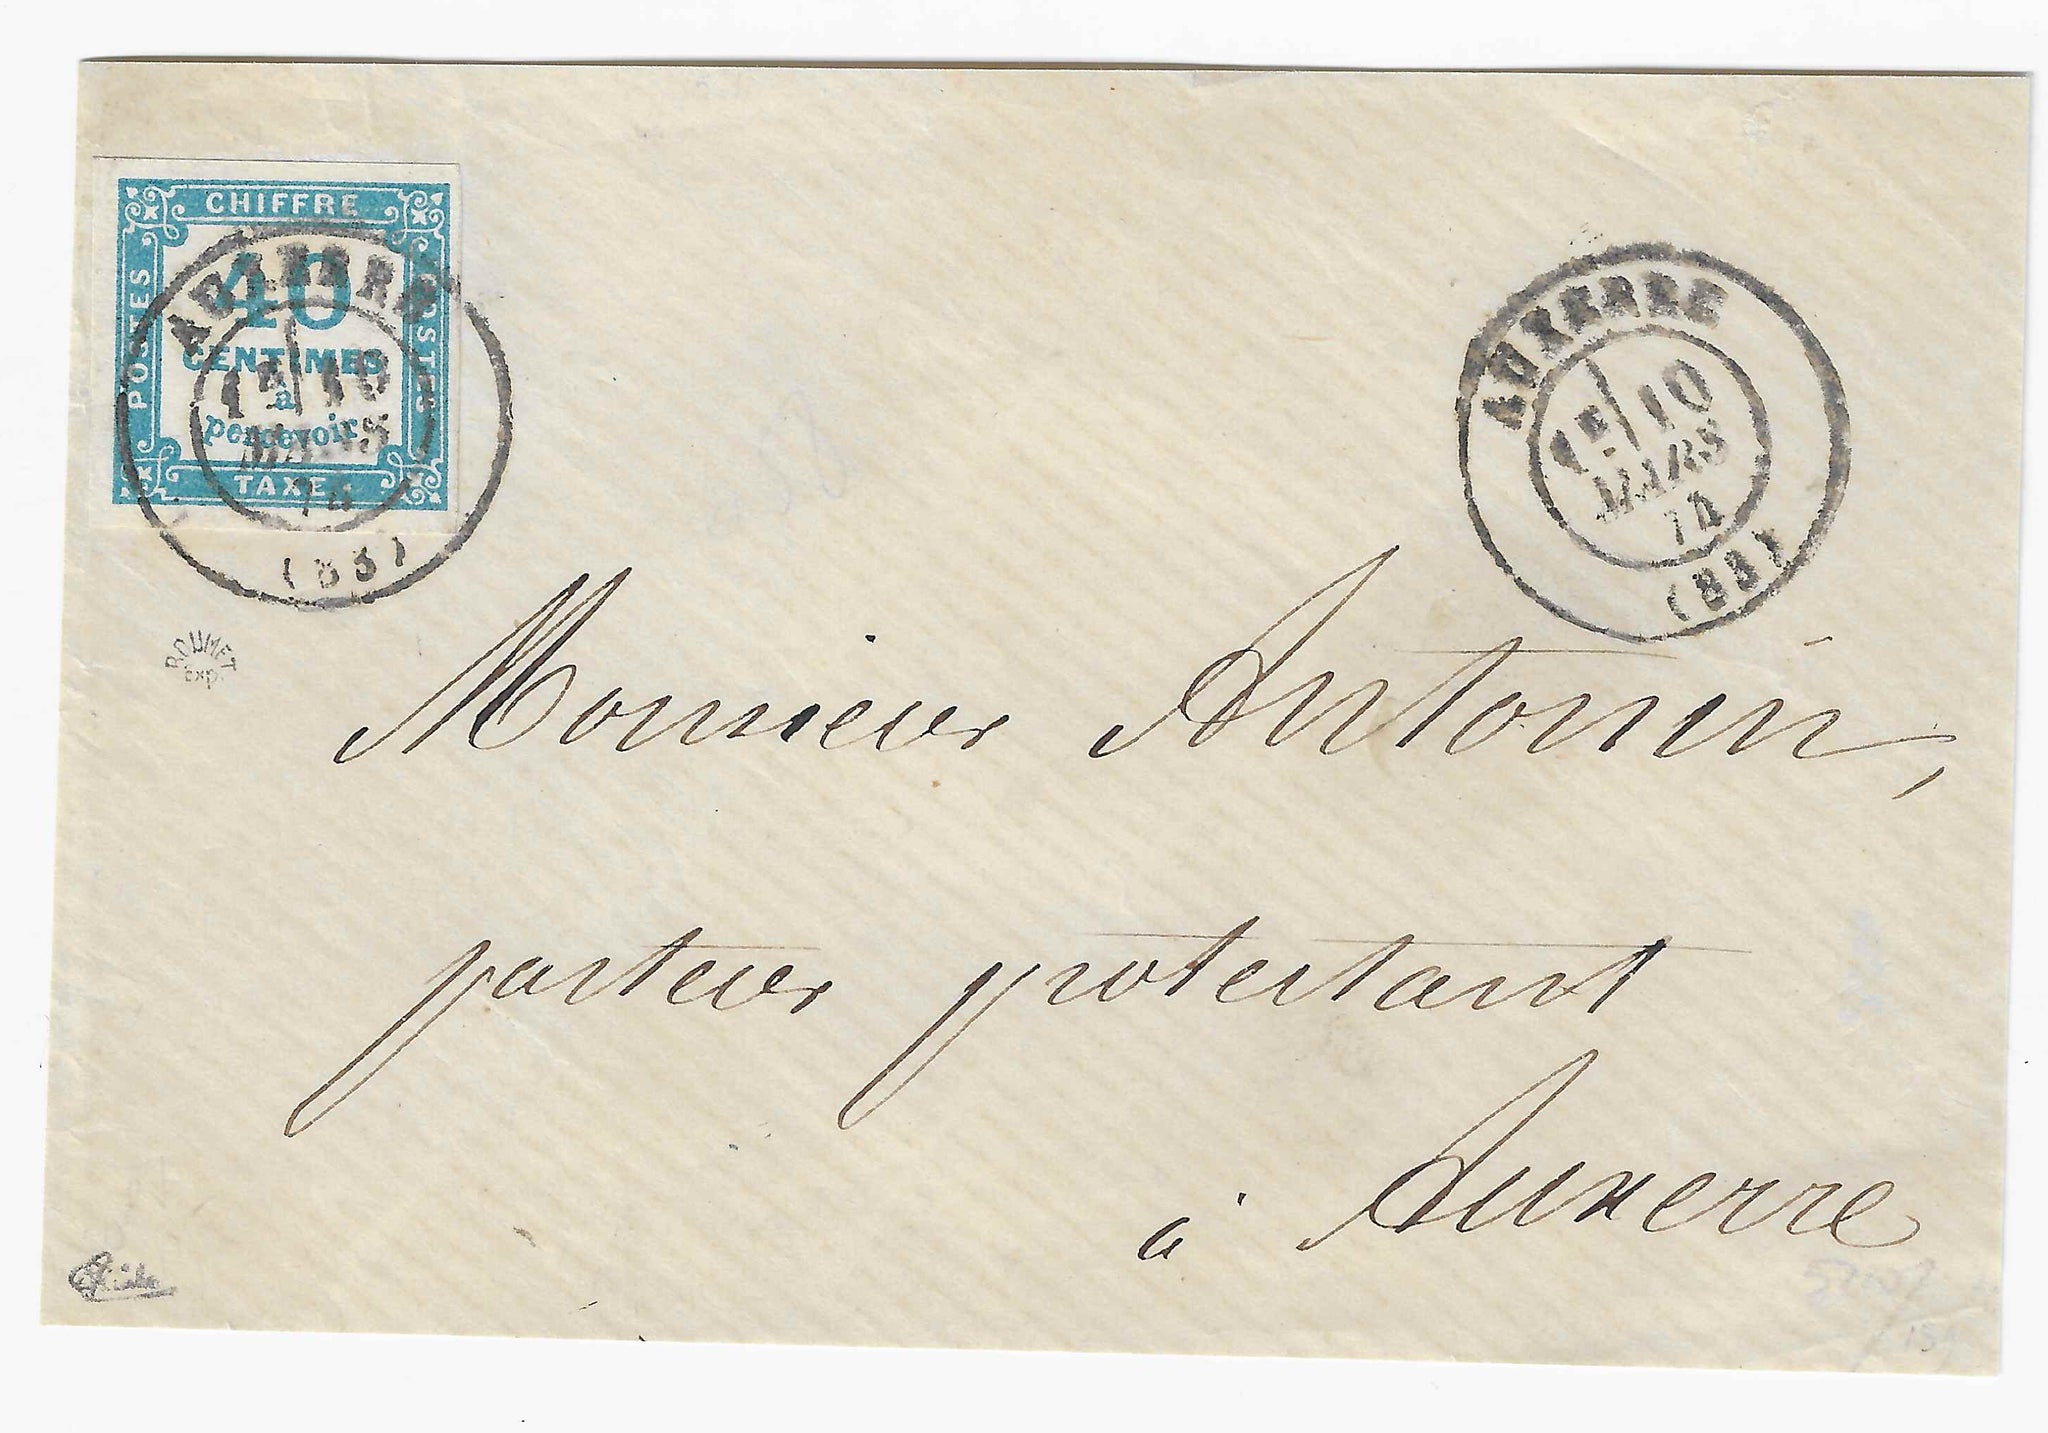 CHIFFRE
POSTES
POSTES
40
CENTIMES
à
percevoir
TAXE
AUXERRE
1E 10
MARS
74
(83)
AUXERRE
1E 10
MARS
74
(83)
ROUMET
exp.
Monsieur Antonin,
porteur protestant
à Auxerre